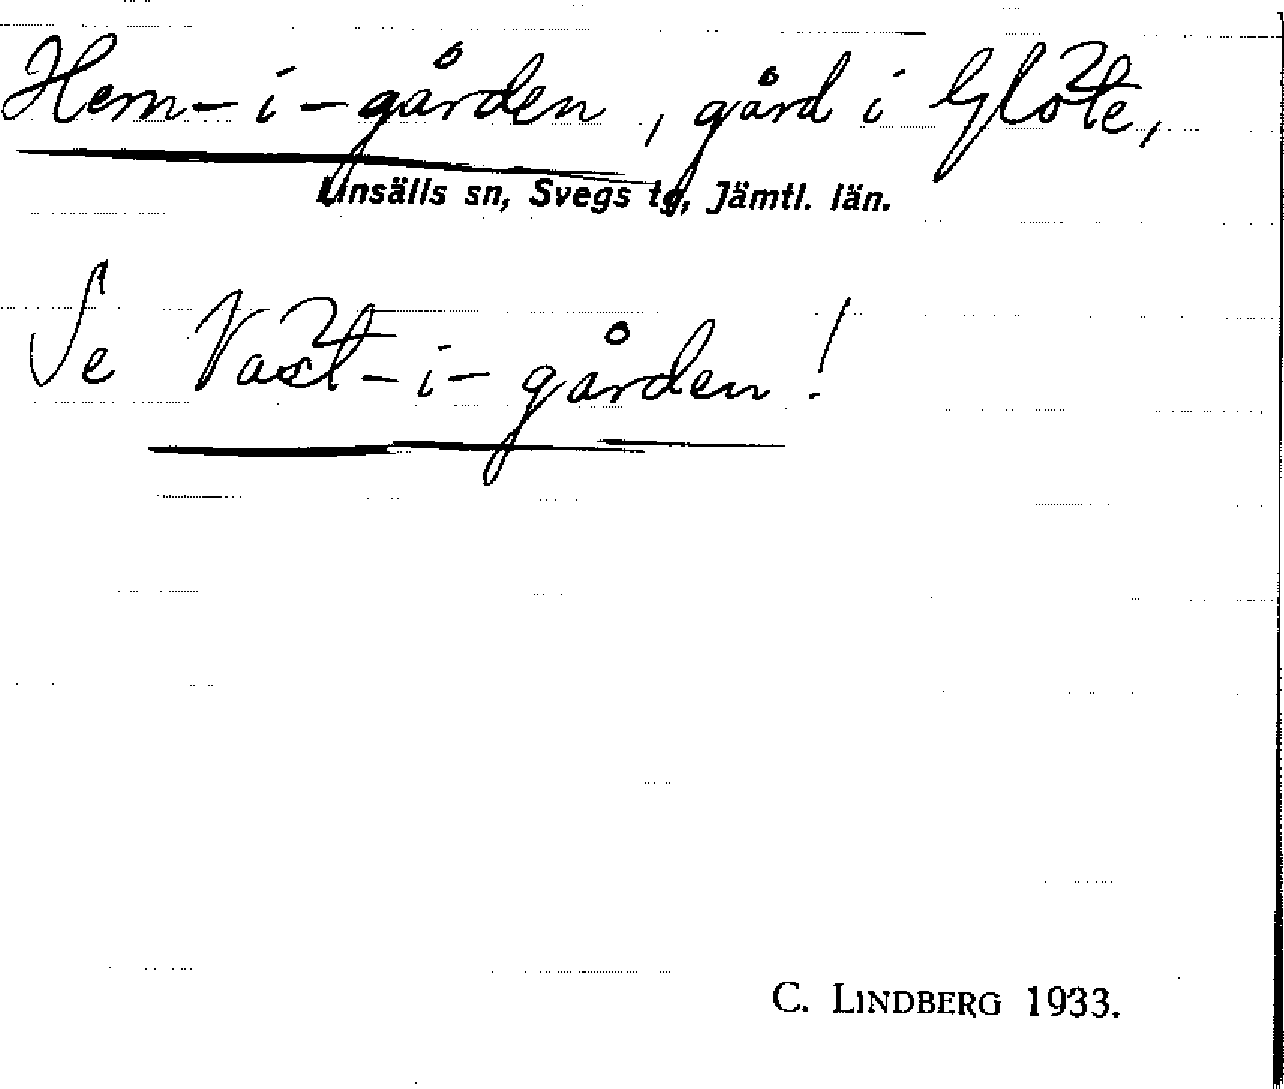 Hem-i-gården, gård i Glöte,
Linsälls sn, Svegs tg, Jämtl. län.
Se Väst-i-gården!
C. LINDBERG 1933.